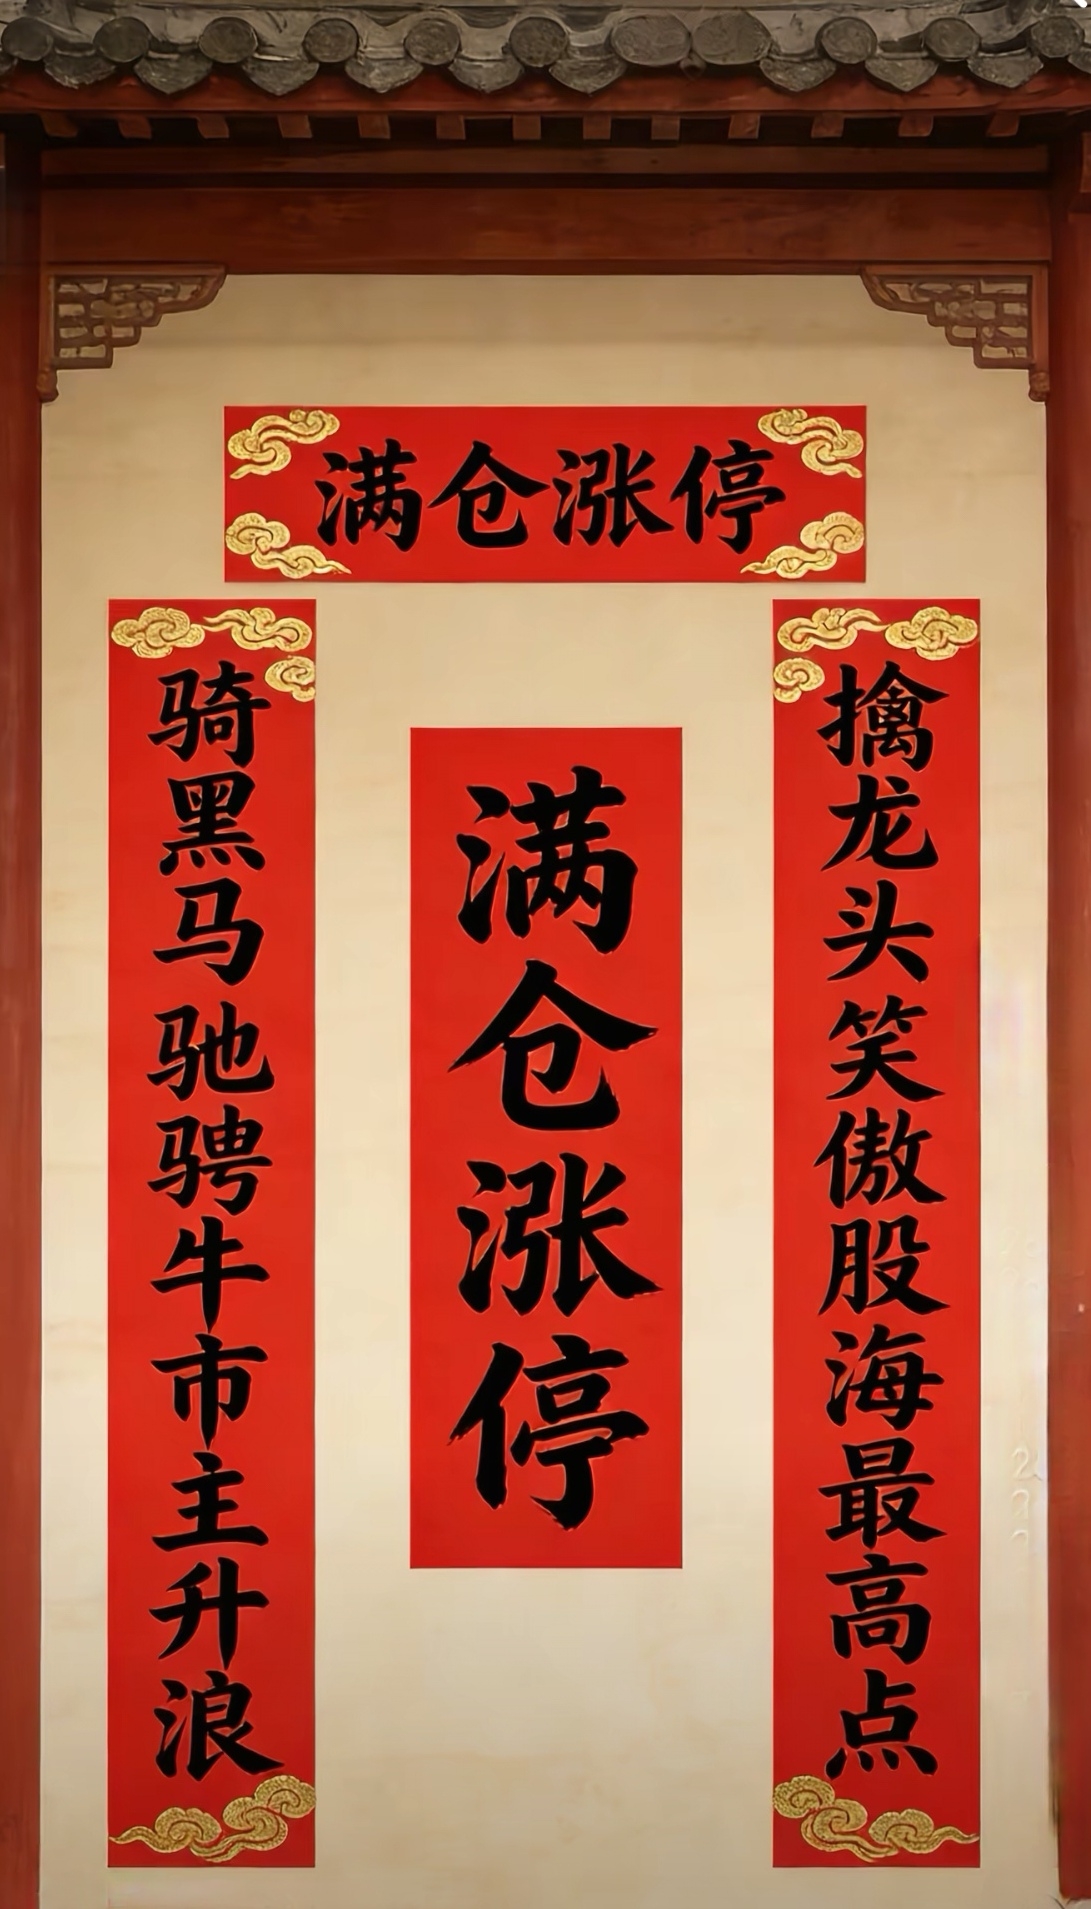 满仓涨停
骑黑马驰骋牛市主升浪
满仓涨停
擒龙头笑傲股海最高点